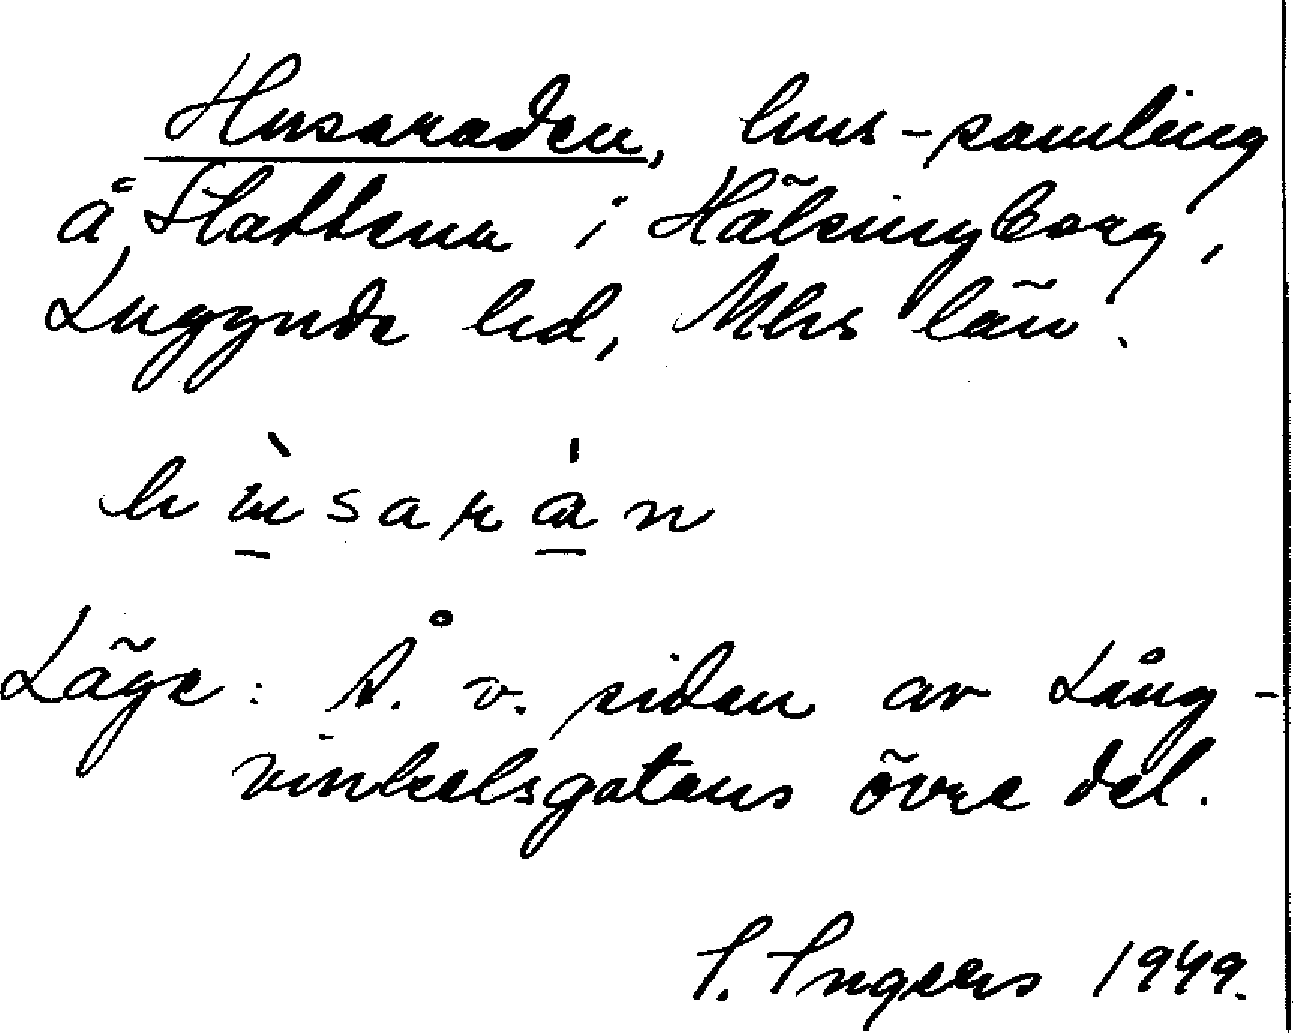 Husaraden, hus-samling
å Slattena i Hälsingborg,
Luggude hd, Mhs län.
hùsarán
Läge: Å. v. sidan av Lång-
vinkelsgatans övre del.
I. Ingers 1949.